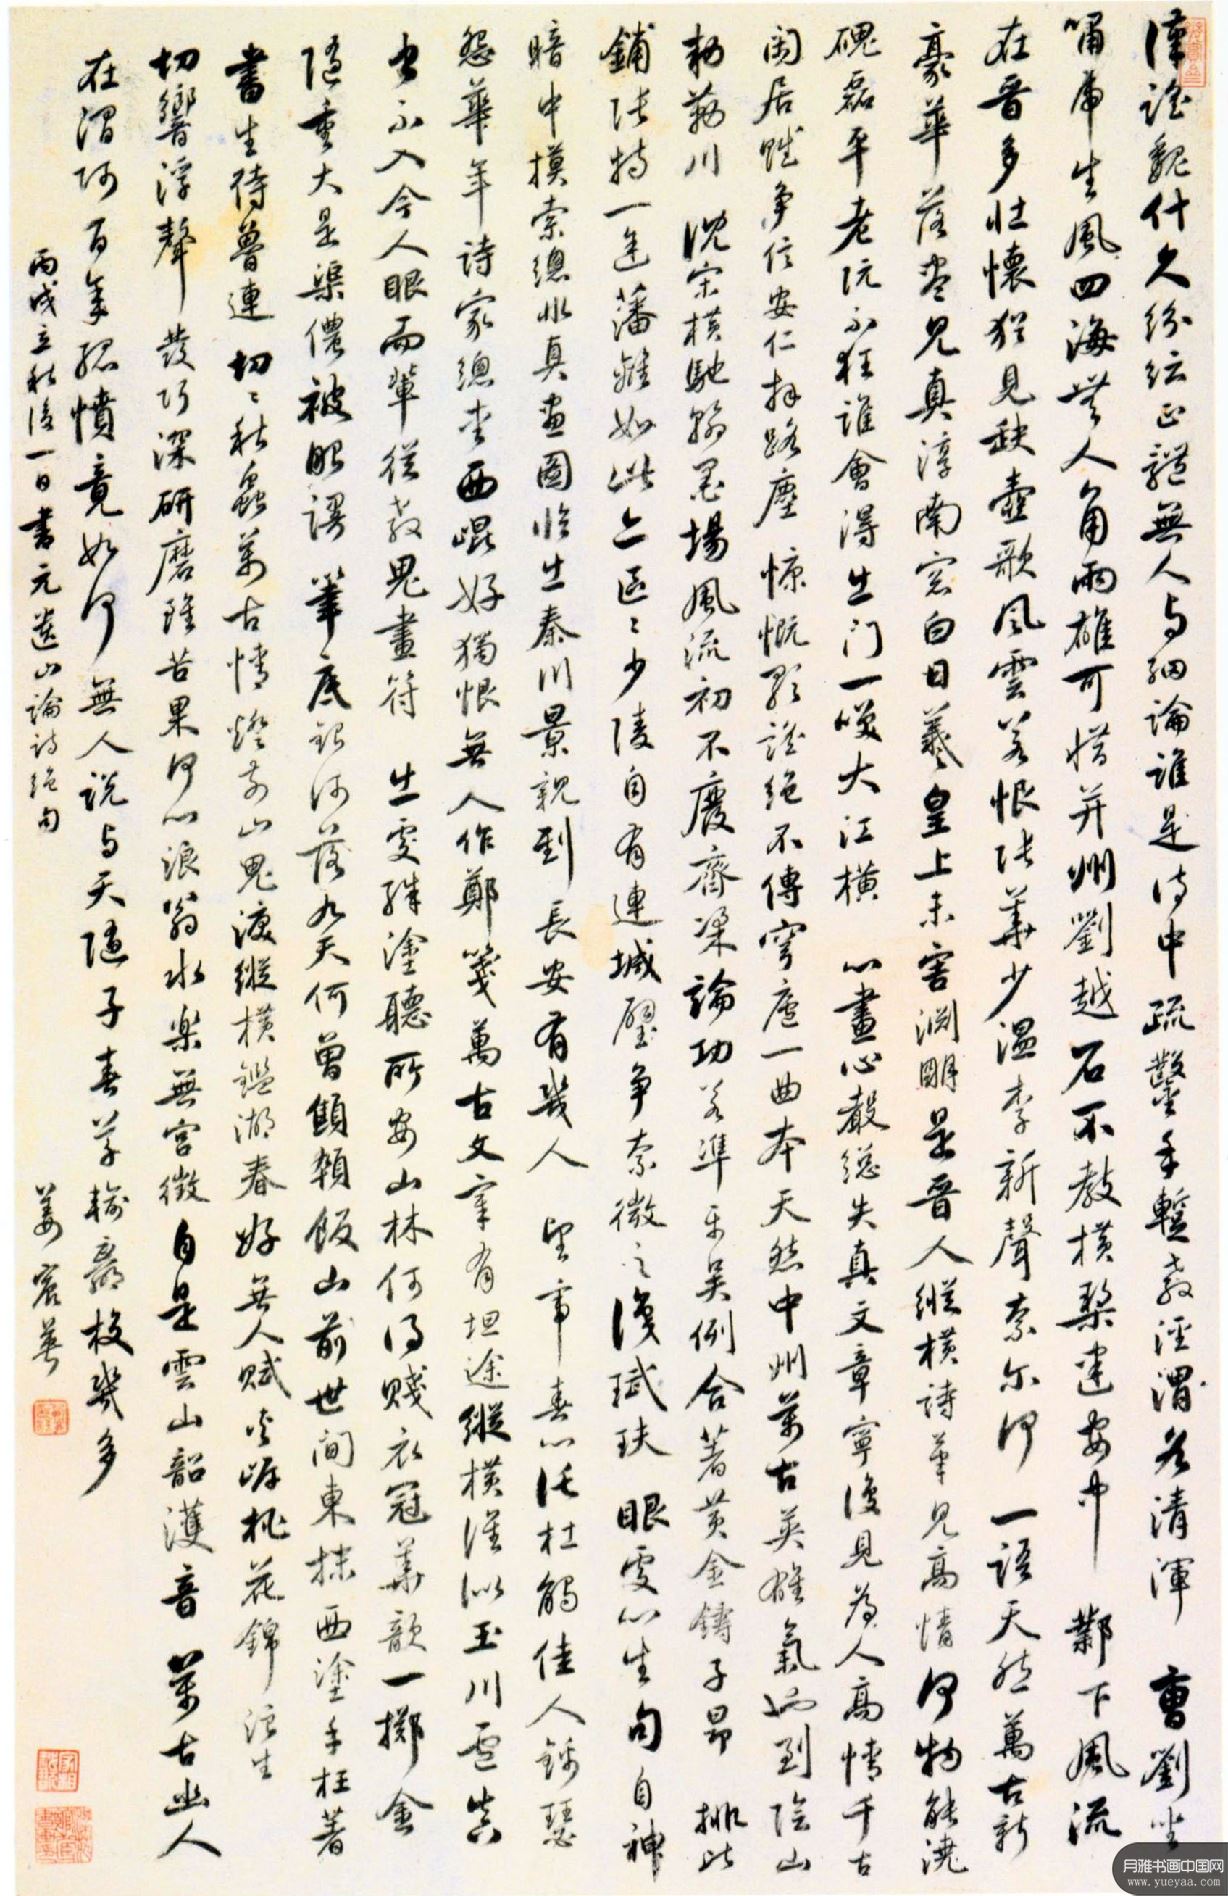 漢謠魏什久紛紜正體無人与細論誰是詩中疏鑿手暫教涇渭各清渾 曹劉坐
嘯虎生風四海無人角兩雄可惜并州劉越石不教橫槊建安中 鄴下風流
在晉多壯懷猶見缺壺歌風雲若恨張華少溫李新聲奈尔何 一語天然萬古新
豪華落盡見真淳南窓白日羲皇上未害淵明是晉人縱橫詩筆見高情何物能澆
磈磊平老阮不狂誰會得出门一笑大江橫 心畫心聲總失真文章寧復見為人高情千古
閑居賦爭信安仁拜路塵 慷慨歌謠絕不傳穹廬一曲本天然中州萬古英雄氣也到陰山
勅勒川 沈宋橫馳翰墨場風流初不廢齊梁論功若準平吳例合著黃金鑄子昂 排比
鋪張特一途藩籬如此亦區〻少陵自有連城璧爭奈微之識珷玞 眼處心生句自神
暗中摸索總非真畫圖臨出秦川景親到長安有幾人 望帝春心托杜鵑佳人錦瑟
怨華年詩家總愛西崐好獨恨無人作鄭箋萬古文章有坦途縱橫誰似玉川盧真
書不入今人眼兒輩從教鬼畫符 出處殊塗聽所安山林何得賤衣冠華歆一擲金
隨重大是渠儂被眼謾 筆底銀河落九天何曾顦顇飯山前世間東抹西塗手枉著
書生待魯連 切〻秋蟲萬古情燈前山鬼淚縱橫鑑湖春好無人賦夾岸桃花錦浪生
切響浮聲發巧深研磨雖苦果何心浪翁水樂無宮徵自是雲山韶濩音 萬古幽人
在澗阿百年孤憤竟如何無人說与天隨子春草輸贏校幾多
丙戌立秋後一日書元遺山論詩絕句 姜宸英
月雅书画中国网
www.yueyaa.com